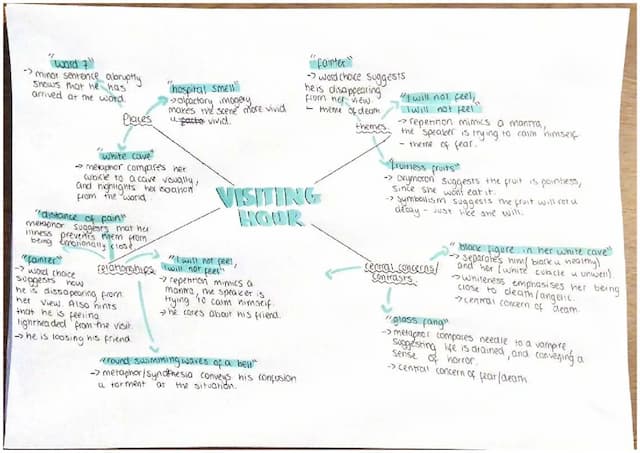 "ward 7"
-> minor sentence abruptly
shows that he has
arrived at the ward.
"hospital smell"
-> olfactory imagery
makes the scene more vivid
vivid.
Places
"white cave"
-> metaphor compares her
cubicle to a cave visually,
and highlights her isolation
from the world.
"fainter"
-> word choice suggests
he is disappearing
from her view.
- theme of death
themes
"I will not feel,
I will not feel"
-> repetition mimics a mantra,
the speaker is trying to calm himself
- theme of fear.
"fruitless fruits"
-> oxymoron suggests the fruit is pointless,
since she wont eat it.
-> symbolism suggests the fruit will rot &
decay - just like she will.
VISITING
HOUR
"distance of pain"
metaphor suggests that her
illness prevents them from
being emotionally close.
"fainter"
-> word choice
suggests how
he is disappearing from
her view. Also hints
that he is feeling
lightheaded from the visit.
-> he is loosing his friend.
relationships
"I will not feel,
I will not feel"
-> repetition mimics a
mantra, the speaker is
trying to calm himself.
-> he cares about his friend.
"round swimming waves of a bell"
-> metaphor/synthesia conveys his confusion
& torment at the situation.
central concerns/
contrasts
"black figure in her white cave"
-> separates him (black & healthy)
and her (white cubicle & unwell)
-> whiteness emphasises her being
close to death/angelic.
-> central concern of death.
"glass fang"
-> metaphor compares needle to a vampire,
suggesting life is drained, and conveying a
sense of horror.
-> central concern of fear/death